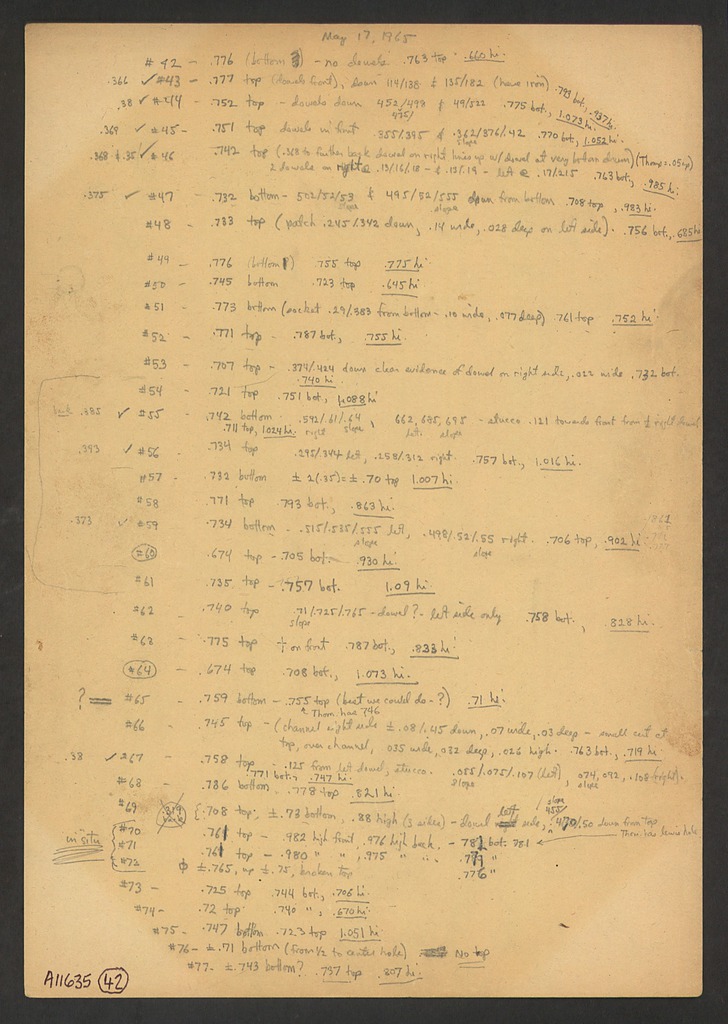 May 17, 1965
#42 - .776 (bottom) - no dowels .763 top .660 hi.
.366 ✓ #43 - .777 top (dowels front), down 114/138 & 135/182 (have iron) .793 bot., .937 hi.
.38 ✓ #44 - .752 top - dowels down 452/498 & 49/522 .775 bot., 1.073 hi.
.369 ✓ #45 - .751 top dowels in front .355/.395 & .362/376/.42 .770 bot., 1.052 hi.
slope
.368 & .35 ✓ #46 .742 top (.368 to further back dowel on right lines up w/ dowel at very bottom drum) (Thomp = .054)
2 dowels on right @ .13/16/18 - & .13/.19 - left @ .17/.215 .763 bot., .985 hi.
.375 ✓ #47 - .732 bottom - 502/52/53 & 495/52/555 down from bottom .708 top, .983 hi.
slope slope
#48 - .733 top (patch .245/.342 down, .14 wide, .028 deep on left side). .756 bot., .685 hi
#49 - .776 (bottom) .755 top .775 hi
#50 - .745 bottom .723 top .645 hi.
#51 - .773 bottom (socket .29/383 from bottom - .10 wide, .077 deep) .761 top .752 hi.
#52 - .771 top - .787 bot., .755 hi.
#53 - .707 top - .374/.424 down clear evidence of dowel on right side, .022 wide .732 bot.
.740 hi.
#54 - .721 top .751 bot., 1.088 hi
.385 ✓ #55 - .742 bottom .592/.61/.64, 662, 685, 695 - stucco .121 towards front from right dowel
.711 top, 1.024 hi. right slope left slope
.393 ✓ #56 .734 top .295/.344 left, .258/.312 right. .757 bot., 1.016 hi.
#57 - .732 bottom ± 2(.35) = ± .70 top 1.007 hi.
#58 .771 top .793 bot., .863 hi.
.373 ✓ #59 .734 bottom - .515/.535/.555 left, .498/.52/.55 right. .706 top, .902 hi.
slope slope
#60 .674 top - .705 bot. .930 hi.
#61 .735 top - .757 bot. 1.09 hi.
#62 .740 top .71/.725/.765 - dowel? - left side only .758 bot., .828 hi.
slope
#63 - .775 top + on front .787 bot., .833 hi.
#64 - .674 top .708 bot., 1.073 hi.
? = #65 - .759 bottom - .755 top (best we could do - ?) .71 hi.
↑ Thom. has 746
#66 .745 top - (channel right side ± .08/.45 down, .07 wide, .03 deep - small cut at
top, over channel, 035 wide, .032 deep, .026 high. .763 bot., .719 hi.
.38 ✓ 267 .758 top - .125 from left dowel, stucco. .055/.075/.107 (left), .074, 092, .108 (right).
.771 bot., .747 hi. slope slope
#68 - .786 bottom .778 top .821 hi
#69 {.708 top; ± .73 bottom, .88 high (3 sides) - dowel left side, .470/.50 down from top
slope 455/
Thom. has lewis hole
in situ {#70 .761 top - .982 high front, .976 high back - 781 bot. 781 ←
#71 .761 top - .980 " " , .975 " " .777 "
#72 φ ± .765, up ± .75, broken top 776 "
#73 - .725 top .744 bot., .706 hi.
#74 - .72 top .740 ", .670 hi.
#75 - .747 bottom .723 top 1.051 hi.
#76 - ± .71 bottom (from 1/2 to center hole) No top
#77 - ± .743 bottom? .737 top .807 hi.
A11635 (42)